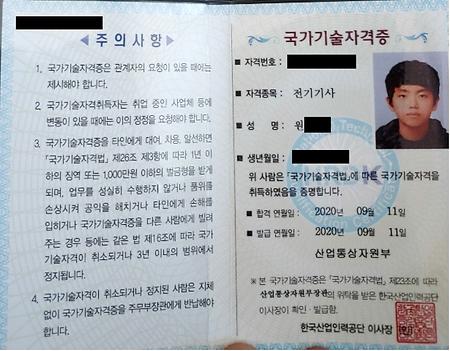 ◀ 주 의 사 항 ▶
1. 국가기술자격증은 관계자의 요청이 있을 때에는
제시해야 합니다.
2. 국가기술자격취득자는 취업 중인 사업체 등에
변동이 있을 때에는 이의 정정을 요청해야 합니다.
3. 국가기술자격증을 타인에게 대여, 차용, 알선하면
「국가기술자격법」 제26조 제3항에 따라 1년 이
하의 징역 또는 1,000만원 이하의 벌금형을 받게
되며, 업무를 성실히 수행하지 않거나 품위를
손상시켜 공익을 해치거나 타인에게 손해를
입히거나 국가기술자격증을 다른 사람에게 빌려
주는 경우 등에는 같은 법 제16조에 따라 국가
기술자격이 취소되거나 3년 이내의 범위에서
정지됩니다.
4. 국가기술자격이 취소되거나 정지된 사람은 지체
없이 국가기술자격증을 주무부장관에게 반납해야
합니다.
국가기술자격증
■ 자격번호 :
■ 자격종목 : 전기기사
■ 성 명 : 원
■ 생년월일 :
위 사람은 「국가기술자격법」에 따른 국가기술자격을
취득하였음을 증명합니다.
■ 합격 연월일 : 2020년 09월 11일
■ 발급 연월일 : 2020년 09월 11일
산업통상자원부
※ 본 국가기술자격증은 「국가기술자격법」 제23조에 따라
산업통상자원부장관의 위탁을 받은 한국산업인력공단
이사장이 확인 · 발급함.
한국산업인력공단 이사장